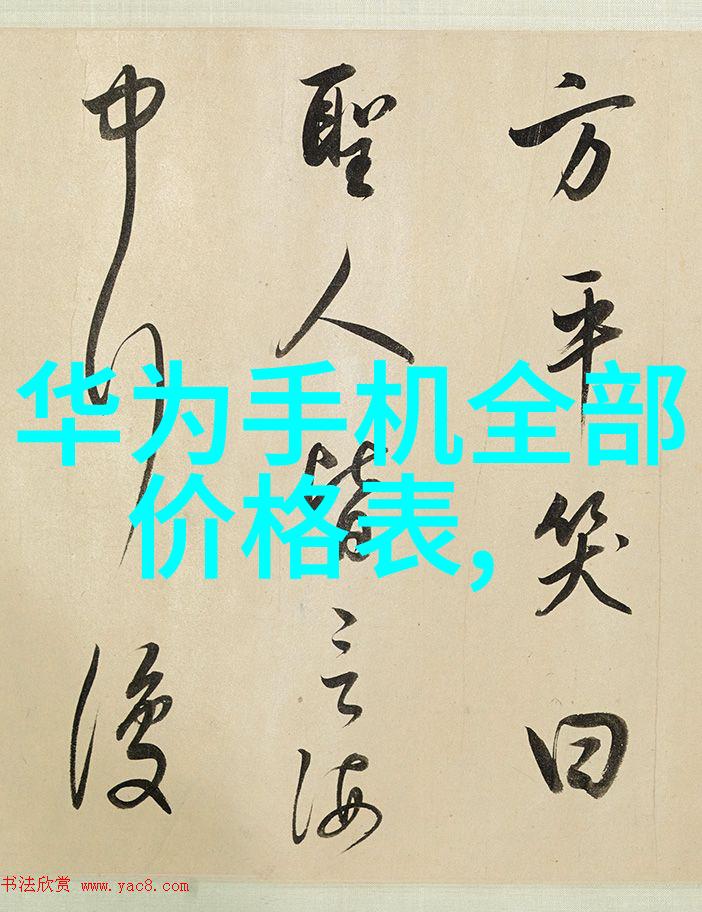 方平笑曰
聖人皆言海
中行復
华为手机全部
价格表,
书法欣赏 www.yac8.com